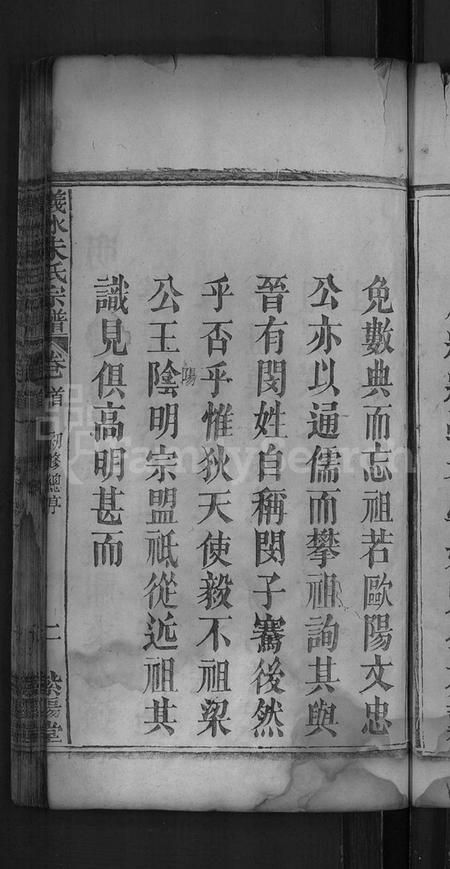 免數典而忘祖若歐陽文忠
公亦以通儒而攀祖詢其與
晉有閔姓自稱閔子騫後然
乎否乎惟狄天使毅不祖梁
公王陰明宗盟祗從近祖其
陽
識見俱高明甚而
義水朱氏宗譜 卷首 初修總序 二 紫陽堂
FamilySearch